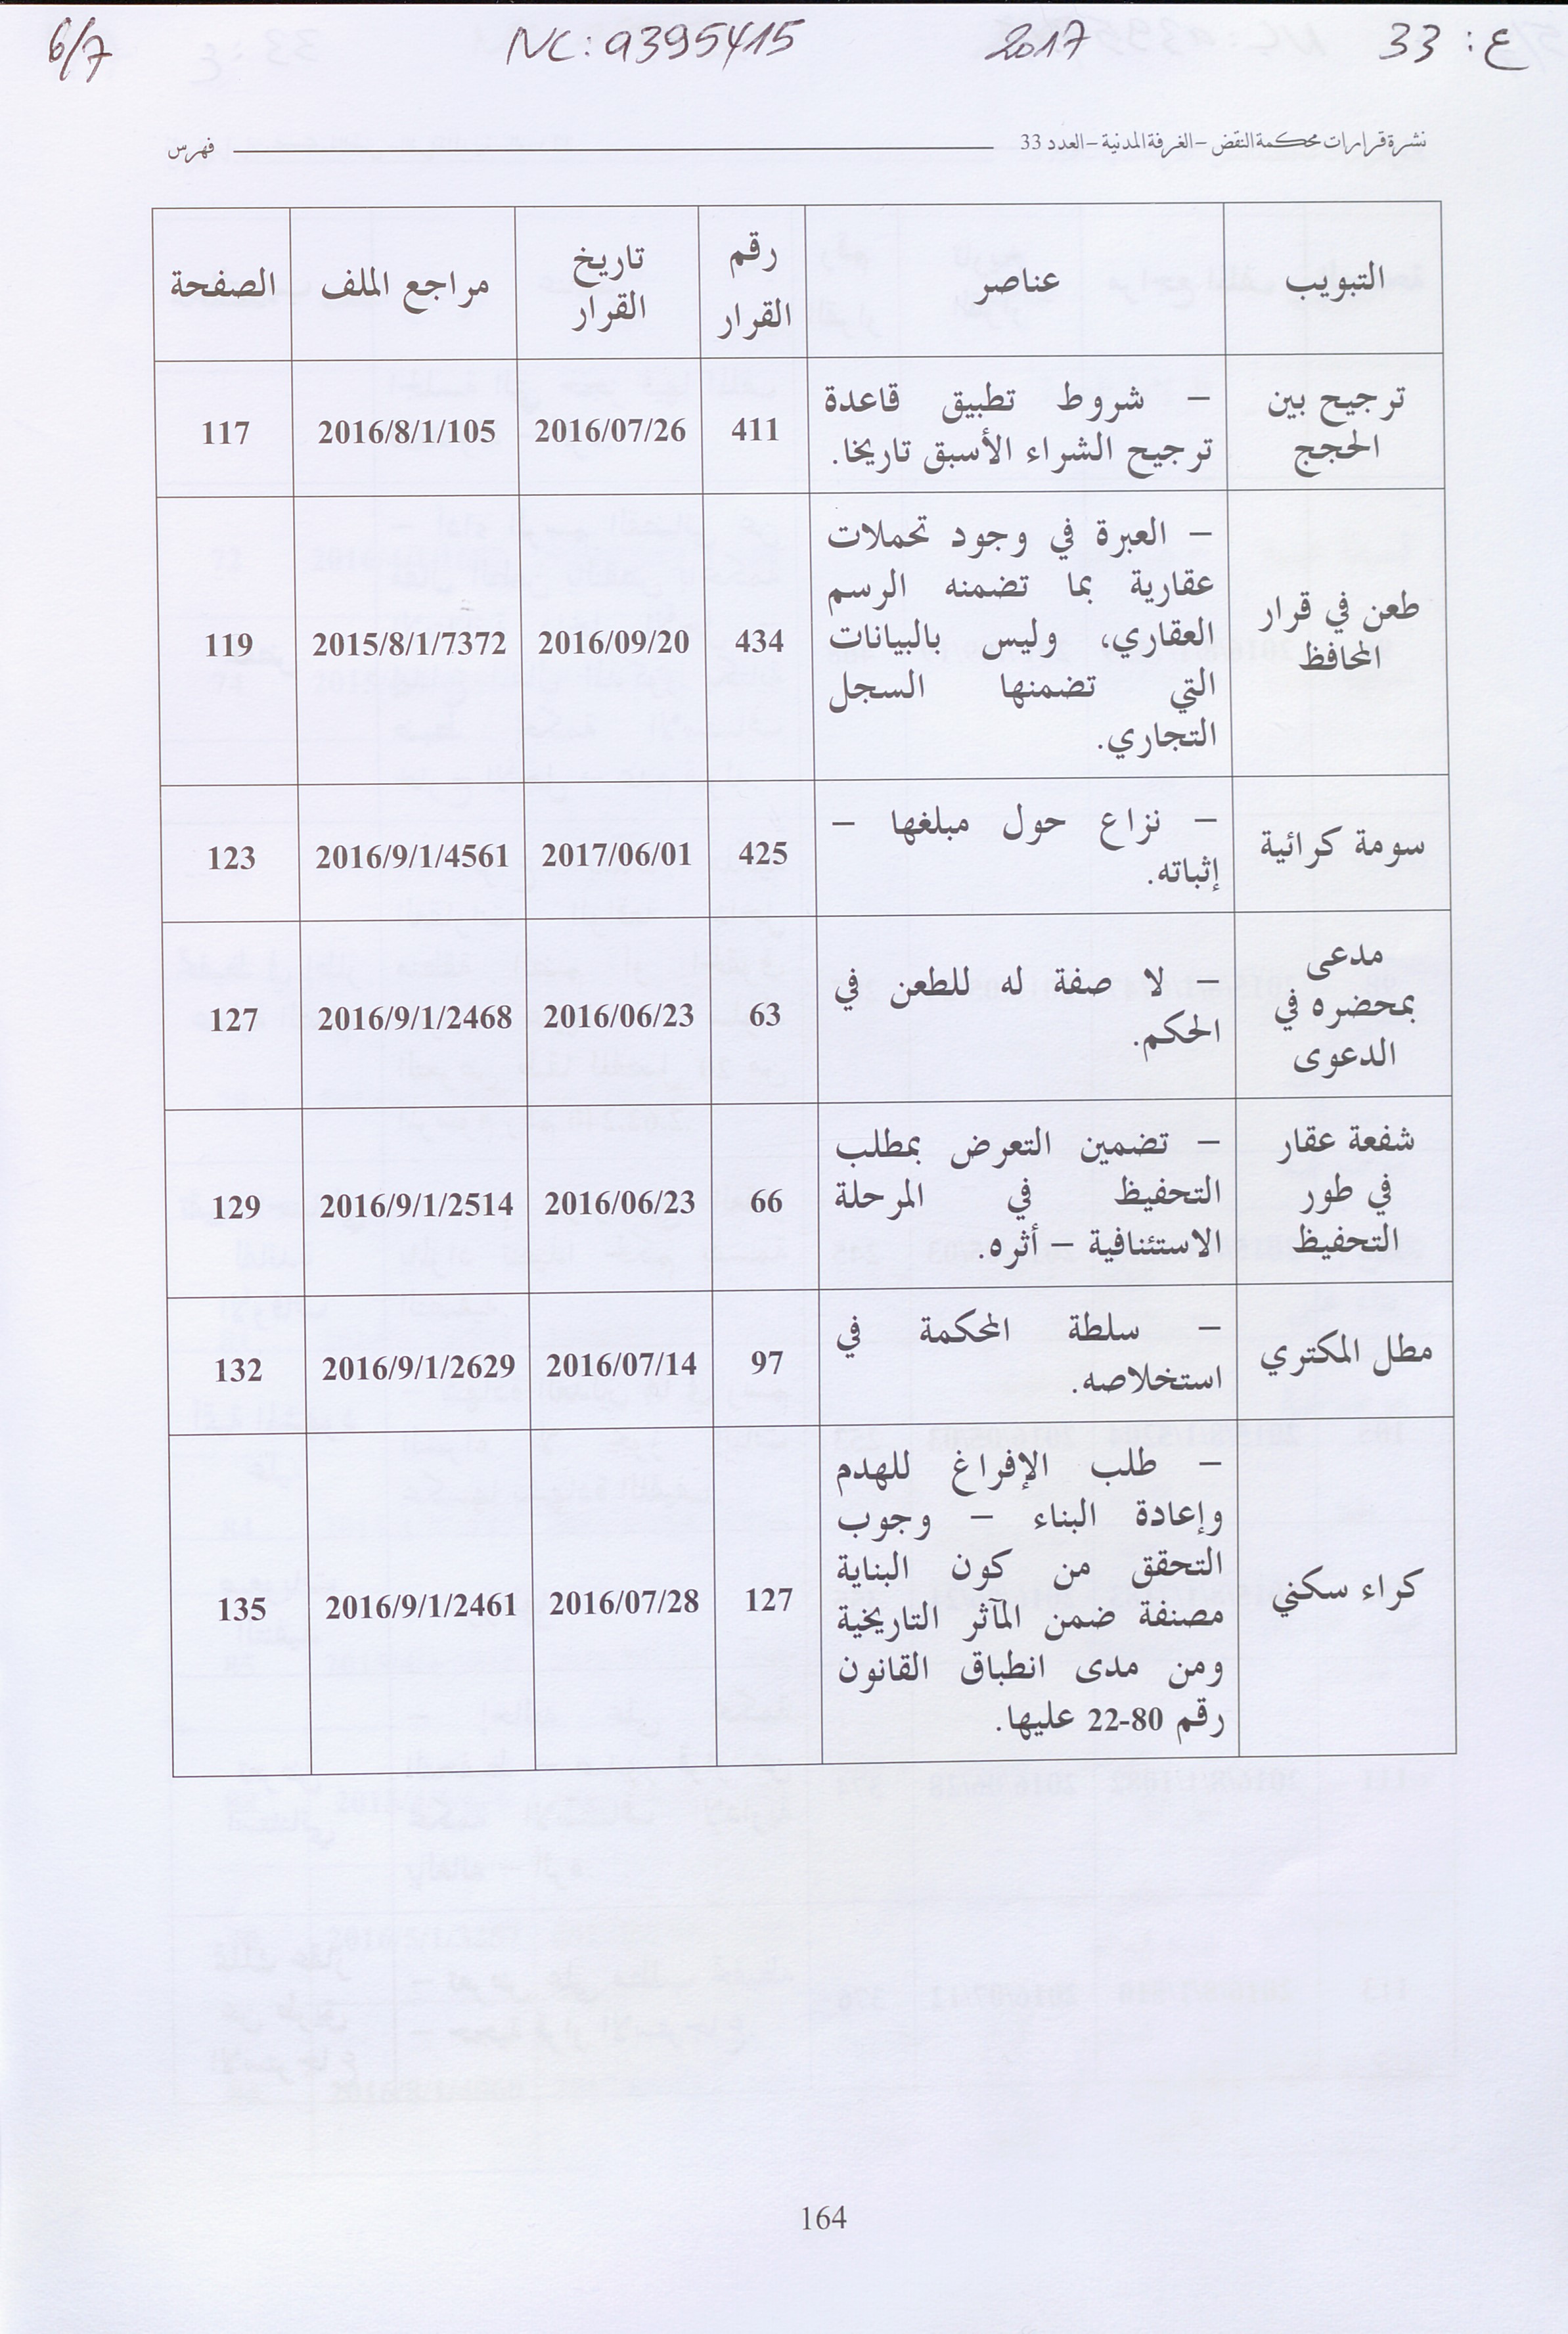 ع: 33 2017 NC: a395415 6/7
نشرة قرارات محكمة النقض – الغرفة المدنية – العدد 33 فهرس
التبويب عناصر رقم القرار تاريخ القرار مراجع الملف الصفحة
ترجيح بين
الحجج
– شروط تطبيق قاعدة
ترجيح الشراء الأسبق تاريخا.
411 2016/07/26 2016/8/1/105 117
طعن في قرار
المحافظ
– العبرة في وجود تحملات
عقارية بما تضمنه الرسم
العقاري، وليس بالبيانات
التي تضمنها السجل
التجاري.
434 2016/09/20 2015/8/1/7372 119
سومة كرائية
– نزاع حول مبلغها –
إثباته.
425 2017/06/01 2016/9/1/4561 123
مدعى
بمحضره في
الدعوى
– لا صفة له للطعن في
الحكم.
63 2016/06/23 2016/9/1/2468 127
شفعة عقار
في طور
التحفيظ
– تضمين التعرض بمطلب
التحفيظ في المرحلة
الاستئنافية – أثره.
66 2016/06/23 2016/9/1/2514 129
مطل المكتري
– سلطة المحكمة في
استخلاصه.
97 2016/07/14 2016/9/1/2629 132
كراء سكني
– طلب الإفراغ للهدم
وإعادة البناء – وجوب
التحقق من كون البناية
مصنفة ضمن المآثر التاريخية
ومن مدى انطباق القانون
رقم 80-22 عليها.
127 2016/07/28 2016/9/1/2461 135
164